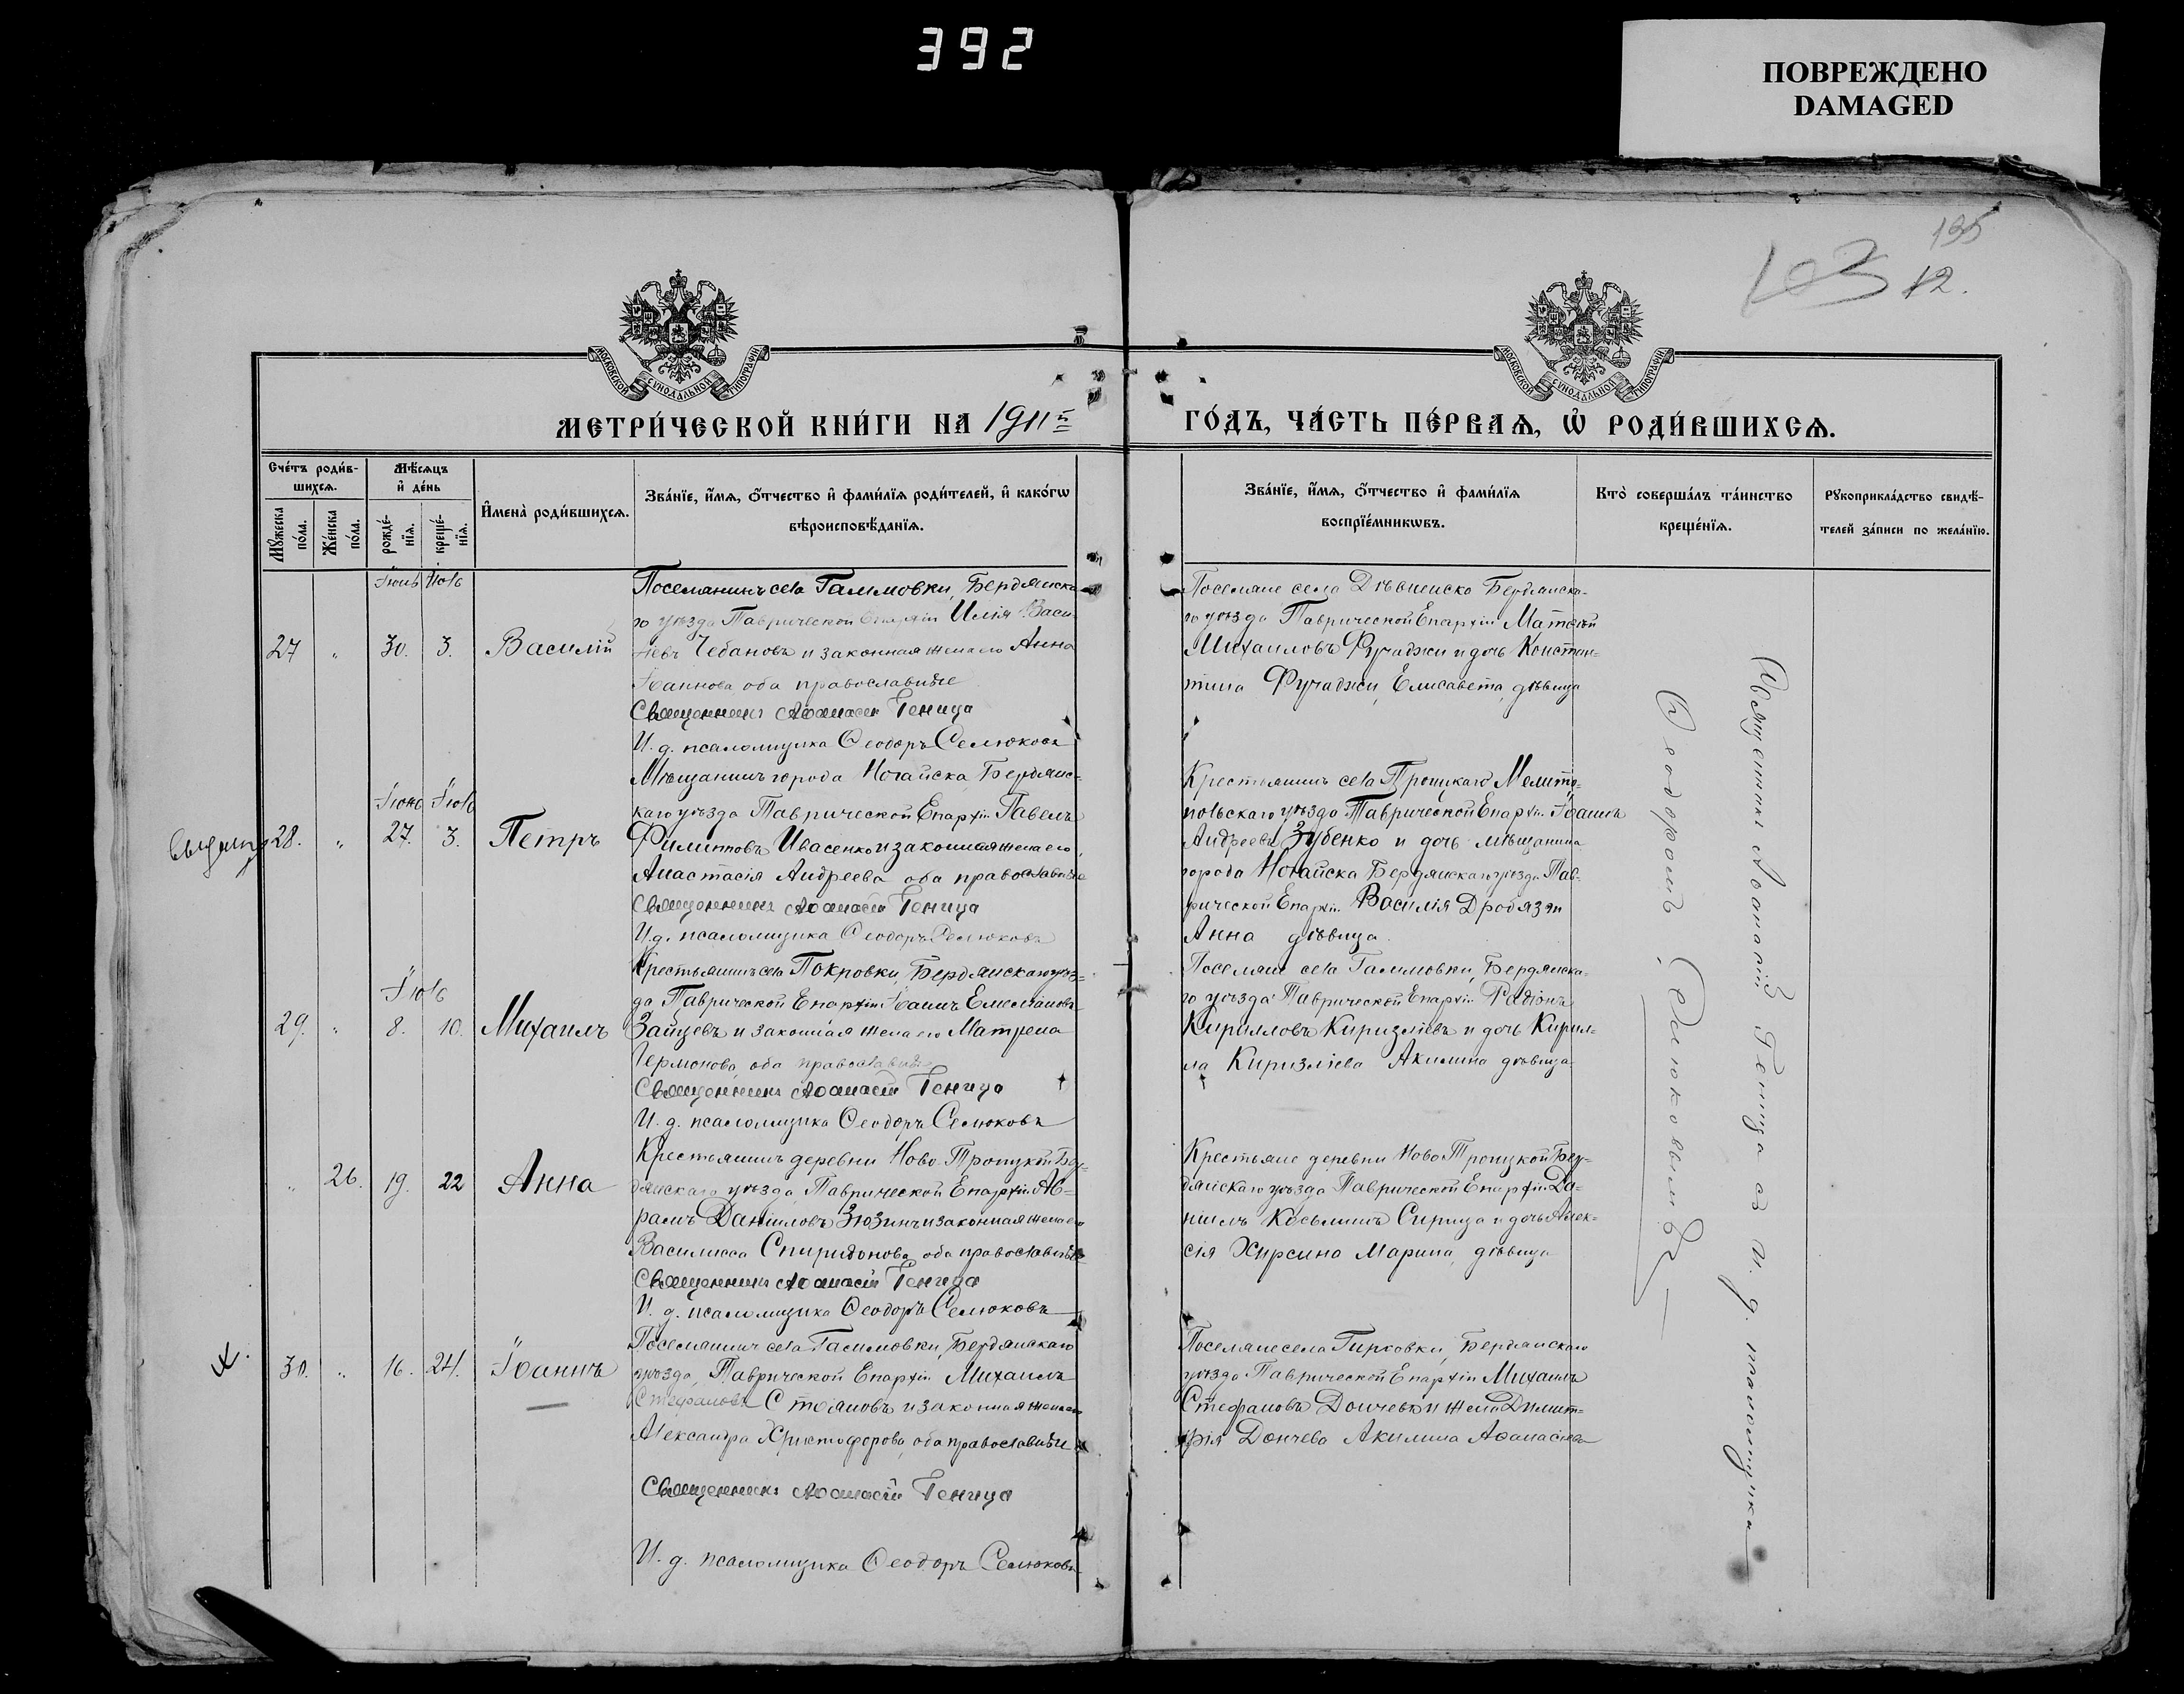 392
ПОВРЕЖДЕНО
DAMAGED
195
103 12.
МОСКОВСКОЙ СѴНОДАЛЬНОЙ ТИПОГРАФІИ
МОСКОВСКОЙ СѴНОДАЛЬНОЙ ТИПОГРАФІИ
МЕТРИ́ЧЕСКОЙ КНИ́ГИ НА 1911й
ГО́ДЪ, ЧА́СТЬ ПЕ́РВАѦ, Ѡ҆ РОДИ́ВШИХСѦ.
Сче́тъ роди́в-
шихсѧ.
Мꙋ́жеска
по́ла.
Же́нска
по́ла.
Мѣ́сѧцъ
и҆ де́нь
рожде́-
нїѧ.
креще́-
нїѧ.
И҆мена̀ роди́вшихсѧ.
Зва́нїе, и҆́мѧ, ѻ҆́тчество и҆ фами́лїѧ роди́телей, и҆ како́гѡ
вѣроисповѣ́данїѧ.
Зва́нїе, и҆́мѧ, ѻ҆́тчество и҆ фами́лїѧ
воспрїе́мникѡвъ.
Кто̀ соверша́лъ та́инство
креще́нїѧ.
Рꙋкоприкла́дство свидѣ́-
телей за́писи по жела́нїю.
Іюнь Іюль
27 „ 30. 3. Василій
Поселянинъ села Галимовки, Бердянска-
го уѣзда Таврической Епархіи Илія Васи-
льевъ Чебановъ и законная жена его Анна
Іоаннова оба православные
Священникъ Аѳанасій Геница
И. д. псаломщика Ѳеодоръ Селюковъ
Поселяне села Бердянска-
го уѣзда Таврической Епархіи Матѳей
Михаиловъ Фучаджи и дочь Констан-
тина Фучаджи, Елисавета, дѣвица
Іюнь Іюль
28. „ 27. 3. Петръ
Мѣщанинъ города Ногайска, Бердянс-
каго уѣзда Таврической Епархіи Павелъ
Филипповъ Ивасенко и законная жена его
Анастасія Андреева оба православные
Священникъ Аѳанасій Геница
И. д. псаломщика Ѳеодоръ Селюковъ
Крестьянинъ села Троицкаго Мелито-
польскаго уѣзда Таврической Епархіи Іоаннъ
Андреевъ Зубенко и дочь мѣщанина
города Ногайска Бердянскаго уѣзда Тав-
рической Епархіи Василія Дробязги
Анна дѣвица
Іюль
29. „ 8. 10. Михаилъ
Крестьянинъ села Покровки, Бердянскаго уѣз-
да Таврической Епархіи Іоаннъ Емеліановъ
Зайцевъ и законная жена его Матрена
Гермонова, оба православные
Священникъ Аѳанасій Геница
И. д. псаломщика Ѳеодоръ Селюковъ
Поселяне села Галимовки, Бердянска-
го уѣзда Таврической Епархіи Радіонъ
Кирилловъ Киризліевъ и дочь Кирил-
ла Киризліева Акилина дѣвица
„ 26. 19. 22 Анна
Крестьянинъ деревни Ново-Троицкой Бер-
дянскаго уѣзда, Таврической Епархіи Ав-
рамъ Даніиловъ Зюзинъ и законная жена его
Василисса Спиридонова, оба православные
Священникъ Аѳанасій Геница
И. д. псаломщика Ѳеодоръ Селюковъ
Крестьяне деревни Ново Троицкой Бер-
дянскаго уѣзда Таврической Епархіи Да-
ніилъ Косьминъ Сирица и дочь Алек-
сія Хирсина Марина, дѣвица
30. „ 16. 24. Іоаннъ
Поселянинъ села Галимовки, Бердянскаго
уѣзда, Таврической Епархіи Михаилъ
Стефановъ Стояновъ и законная жена его
Александра Христофорова, оба православные
Священникъ Аѳанасій Геница
И. д. псаломщика Ѳеодоръ Селюковъ
Поселяне села Гирковки, Бердянскаго
уѣзда Таврической Епархіи Михаилъ
Стефановъ Дончевъ и жена Димит-
рія Дончева Акилина Аѳанасіева
Священникъ Аѳанасій Геница съ и. д. псаломщика
Ѳеодоромъ Селюковымъ